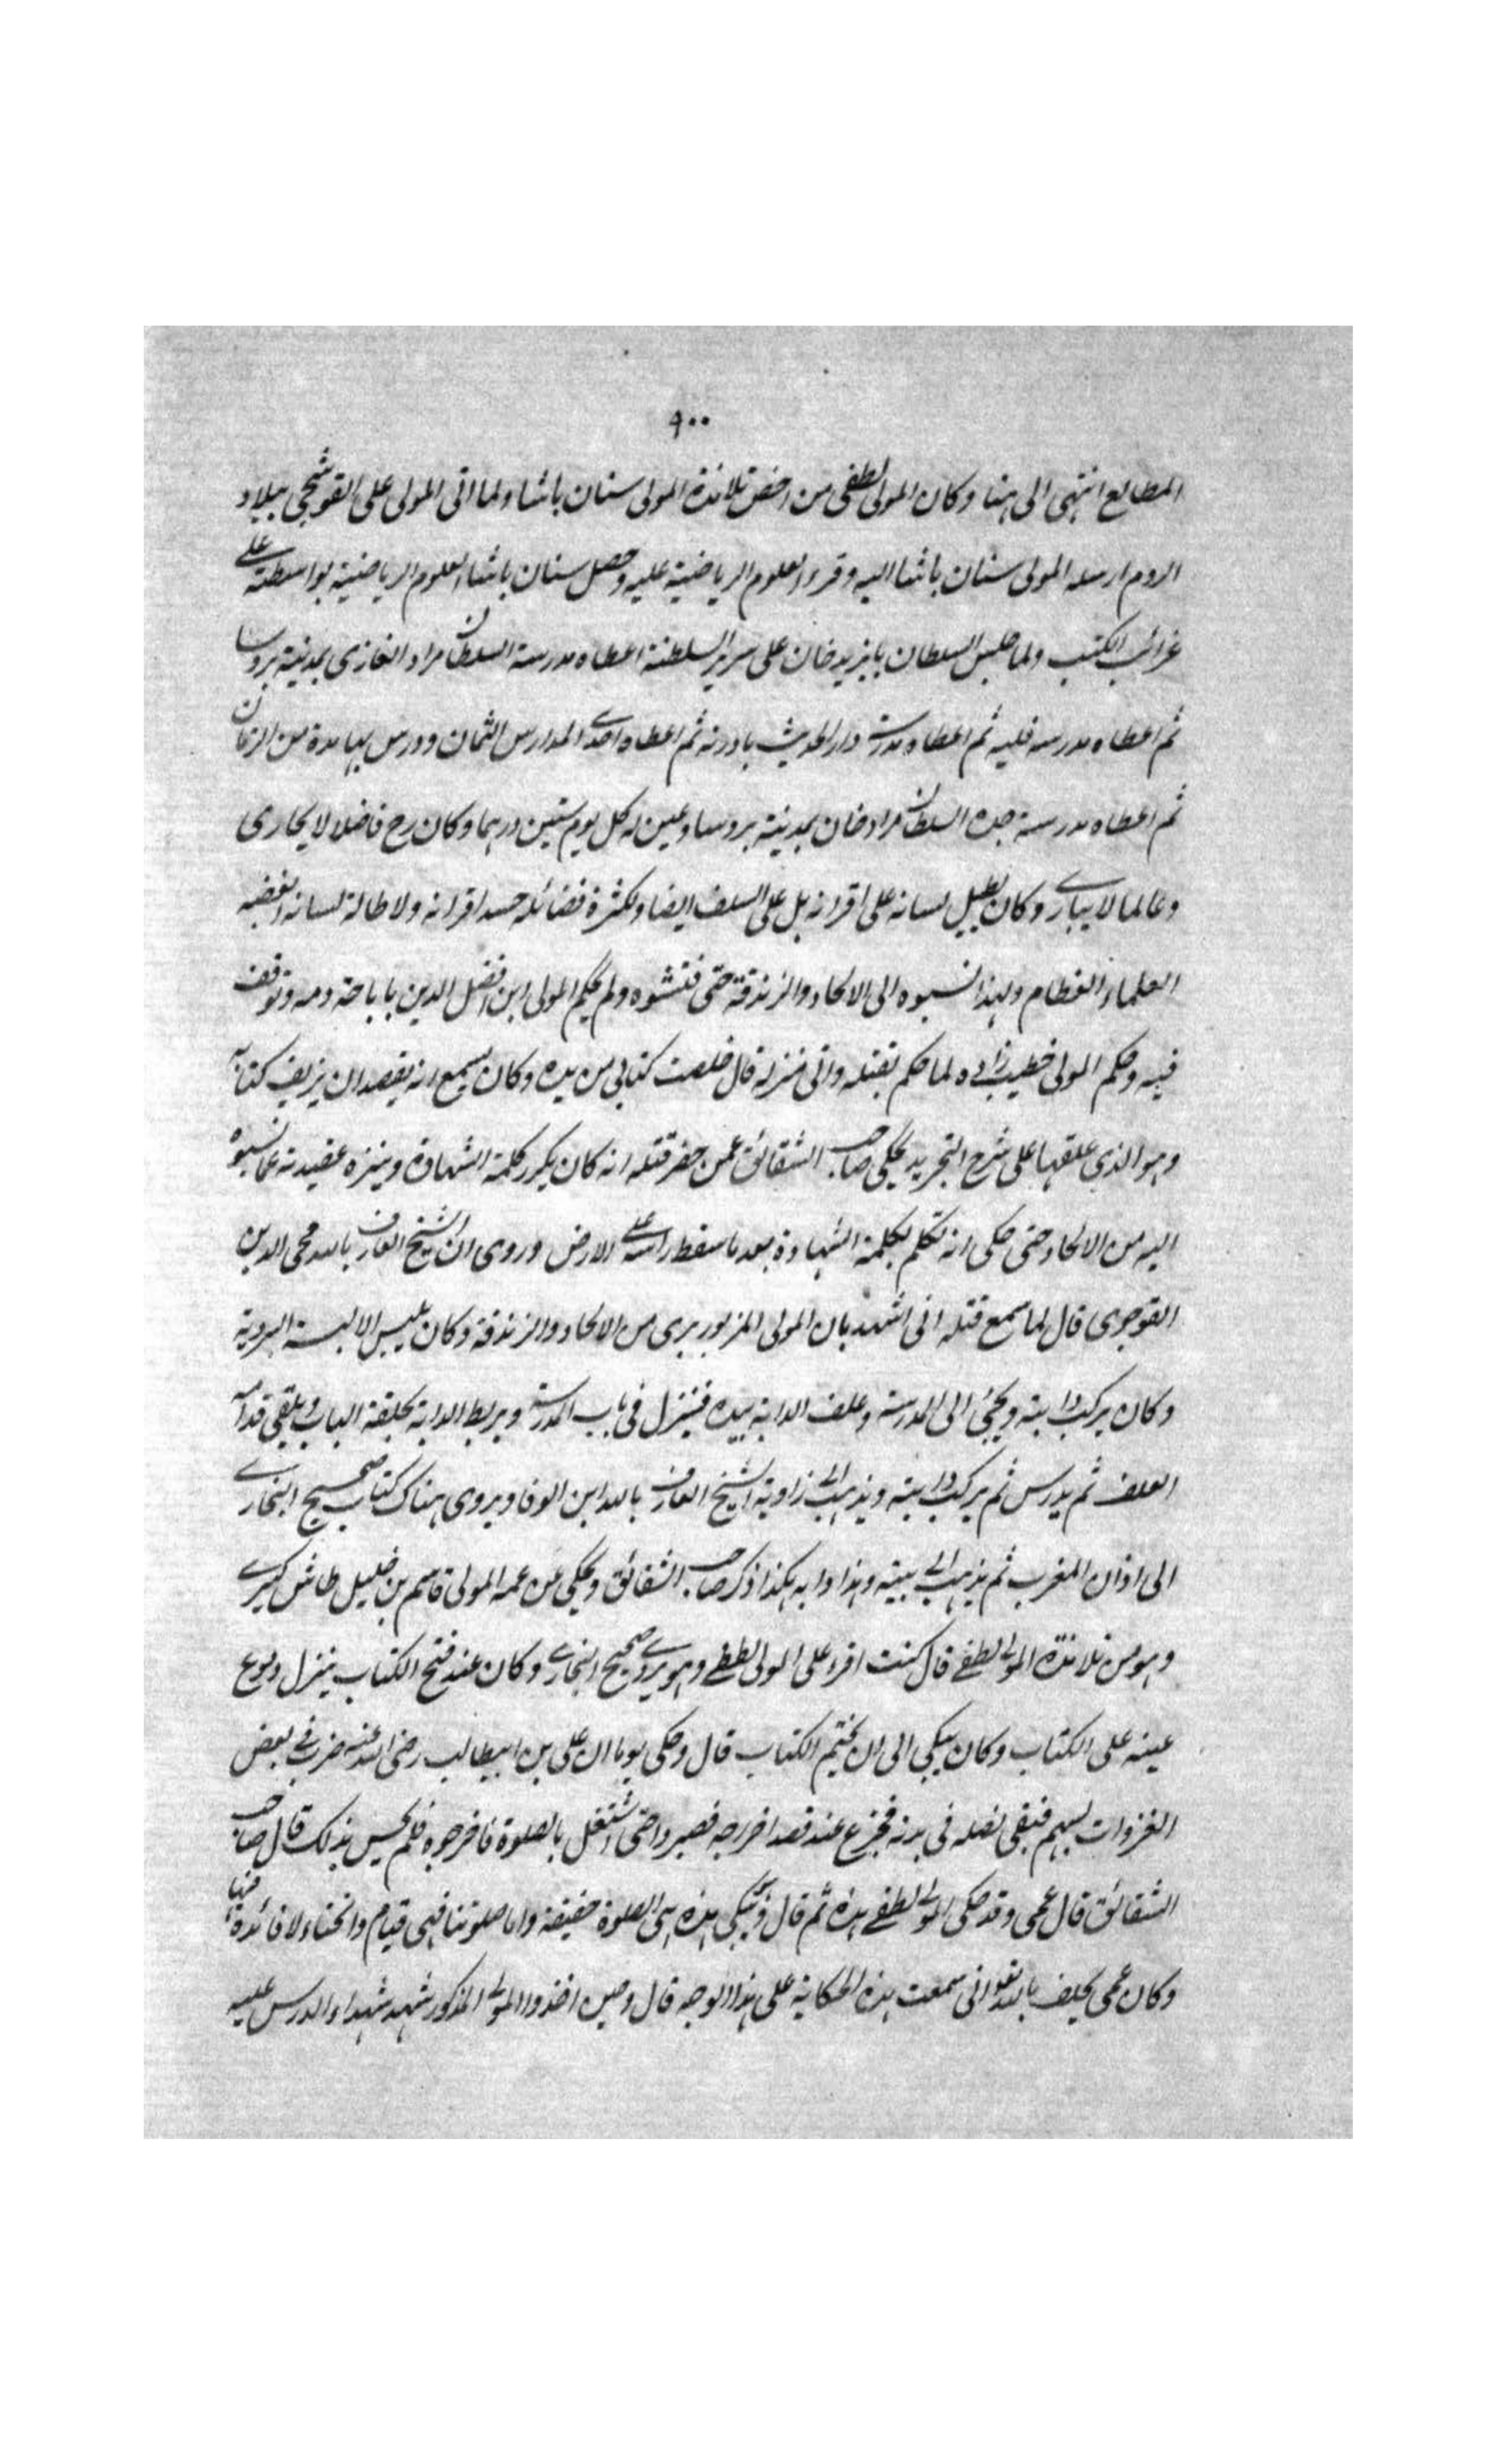 ٩٠٠
المطالع انتهى الى هنا وكان المولى لطفى من اخص تلامذة المولى سنان باشا ولما اتى المولى على القوشجى ببلاد
الروم ارسله المولى سنان باشا اليه وقرء العلوم الرياضية عليه وحصل سنان باشا العلوم الرياضية بواسطته على
غرائب الكتب ولما جلس السلطان بايزيد خان على سرير السلطنة اعطاه مدرسة السلطان مراد الغازى بمدينة بروسا
ثم اعطاه مدرسه فلبه ثم اعطاه مدرسة دار الحديث بادرنه ثم اعطاه احدى المدارس الثمان ودرس بها مدة من الزمان
ثم اعطاه مدرسة جده السلطان مراد خان بمدينة بروسا وعين له كل يوم ستين درهما وكان رح فاضلا لا يجارى
وعالما لا يبارى وكان يطيل لسانه على اقرانه بل على السلف ايضا ولكثرة فضائله حسد اقرانه ولاطالة لسانه ابغضه
العلماء العظام ولهذا نسبوه الى الالحاد والزندقة حتى فتشوه ولم يحكم المولى ابن افضل الدين باباحة دمه وتوقف
فيه وحكم المولى خطيب زاده لما حكم بقتله واتى منزله قال خلصت كتابى من يده وكان يسمع انه يقصد ان يزيف كتابه
وهو الذى علقها على شرح التجريد يحكى صاحب الشقائق عمن حضر قتله انه كان يكرر كلمة الشهادة وينزه عقيدته عما نسبوه
اليه من الالحاد حتى حكى انه تكلم بكلمة الشهادة بعد ما سقط راسه على الارض وروى ان الشيخ العارف بالله محى الدين
القوجوى قال لما سمع قتله انى اشهد بان المولى المزبور برى من الالحاد والزندقة وكان يلبس الالبسة الردية
وكان يركب دابته ويجئى الى المدرسة وعلف الدابة بيده فينزل فى باب المدرسة ويربط الدابة بحلقة الباب ويلقى قدامه
العلف ثم يدرس ثم يركب دابته ويذهب الى زاوية الشيخ العارف بالله ابن الوفا ويروى هناك كتاب صحيح البخارى
الى اذان المغرب ثم يذهب الى بيته وهذا دابه هكذا ذكر صاحب الشقائق ويحكى عن عمه المولى قاسم بن خليل طاش كبرى
وهو من تلامذة المولى لطفى قال كنت اقرء على المولى لطفى وهو يروى صحيح البخارى وكان عند فتح الكتاب ينزل دموع
عينه على الكتاب وكان يبكى الى ان يختم الكتاب قال وحكى يوما ان على بن ابيطالب رضى الله عنه ضرب فى بعض
الغزوات بسهم فبقى نصله فى بدنه فجزع عند قصد اخراجه فصبروا حتى اشتغل بالصلوة فاخرجوه فلم يحس بذلك قال صاحب
الشقائق قال عمى وقد حكى المولى لطفى هذه ثم قال وهو يبكى هذه هى الصلوة حقيقة واما صلوتنا فهى قيام وانحناء لا فائدة فيها
وكان عمى يحلف بالله تعالى انى سمعت هذه الحكاية على هذا الوجه قال وحين اخذوا المولى المذكور شهد شهداء الدرس عليه